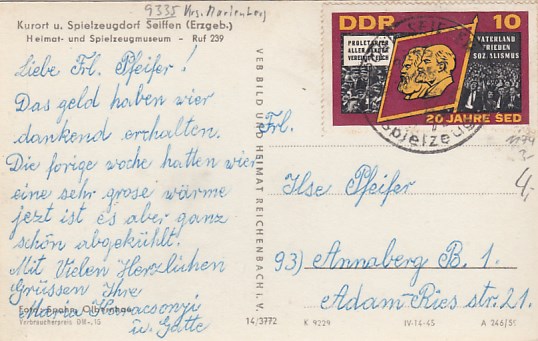 9335 Krs. Marienberg
Kurort u. Spielzeugdorf Seiffen (Erzgeb.)
Heimat- und Spielzeugmuseum - Ruf 239
Liebe Frl. Pfeifer!
Das geld haben wier
dankend erchalten.
Die forige woche hatten wier
eine sehr grose wärme
jezt ist es aber ganz
schön abgekühlt.
Mit Vielen Herzlichen
Grüssen Ihre
Maria
u. Gatte
Foto:
Verbraucherpreis DM -,15
14/3772
VERBRUD UND HEIMAT REICHENBACH I. V.
DDR 10
PROLETARIER
ALLER LÄNDER
VEREINIGT EUCH
VATERLAND
FRIEDEN
SOZIALISMUS
20 JAHRE SED
SEIFFEN
Spielzeug
1199
4,-
Frl.
Ilse Pfeifer
93) Annaberg B. 1.
Adam-Ries str. 21.
K 9229
IV-14-45
A 246/51